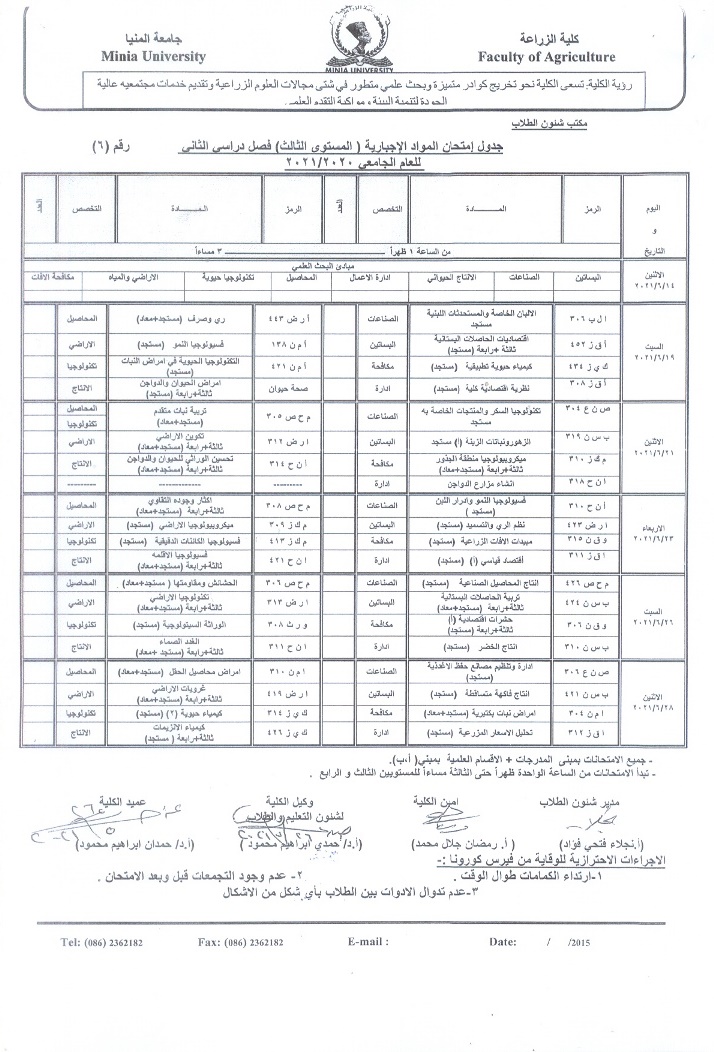 جامعة المنيا
Minia University
MINIA UNIVERSITY
كلية الزراعة
Faculty of Agriculture
رؤية الكلية: تسعى الكلية نحو تخريج كوادر متميزة وبحث علمي متطور في شتى مجالات العلوم الزراعية وتقديم خدمات مجتمعيه عالية
الجودة لتنمية البيئة ومواكبة التقدم العلمي
مكتب شئون الطلاب
جدول إمتحان المواد الإجبارية ( المستوى الثالث) فصل دراسي الثاني رقم (٦)
للعام الجامعي ٢٠٢١/٢٠٢٠
اليوم و التاريخ الرمز المـــــــادة التخصص العدد الرمز المـــــــادة التخصص العدد
من الساعة ١ ظهراً ــــــــــ ٣ مساءاً
الاثنين ٢٠٢١/٦/١٤
مبادئ البحث العلمي
البساتين الصناعات الانتاج الحيواني ادارة الاعمال المحاصيل تكنولوجيا حيوية الاراضي والمياه مكافحة الافات
السبت ٢٠٢١/٦/١٩
ا ل ب ٣٠٦ الالبان الخاصة والمستحدثات اللبنية مستجد الصناعات أ ر ض ٤٤٣ ري وصرف (مستجد+معاد) المحاصيل
أ ق ز ٤٥٢ اقتصاديات الحاصلات البستانية ثالثة +رابعة (مستجد) البساتين أ م ن ١٣٨ فسيولوجيا النمو (مستجد) الاراضي
ك ي ز ٤٣٤ كيمياء حيوية تطبيقية (مستجد) مكافحة أ م ن ٤٢١ التكنولوجيا الحيوية في امراض النبات (مستجد) تكنولوجيا
أ ق ز ٣٠٨ نظرية اقتصادية كلية (مستجد) ادارة صحة حيوان امراض الحيوان والدواجن ثالثة+رابعة (مستجد) الانتاج
الاثنين ٢٠٢١/٦/٢١
ص ن ع ٣٠٤ تكنولوجيا السكر والمنتجات الخاصة به مستجد الصناعات م ح ص ٣٠٥ تربية نبات متقدم (مستجد+معاد) المحاصيل تكنولوجيا
ب س ن ٣١٩ الزهورونباتات الزينة (أ) مستجد البساتين ا ر ض ٣١٢ تكوين الاراضي ثالثة+رابعة (مستجد+معاد) الاراضي
م ك ز ٣١٠ ميكروبيولوجيا منطقة الجذور ثالثة+رابعة (مستجد+معاد) مكافحة أ ن ح ٣١٤ تحسين الوراثي للحيوان والدواجن ثالثة+رابعة (مستجد+معاد) الانتاج
ا ن ح ٣١٨ انشاء مزارع الدواجن ادارة --------- ------------- ---------
الاربعاء ٢٠٢١/٦/٢٣
أ ن ح ٣١٠ فسيولوجيا النمو وادرار اللبن (مستجد ) الصناعات م ح ص ٣٠٨ اكثار وجوده التقاوي ثالثة+رابعة (مستجد+معاد) المحاصيل
ا ر ض ٤٢٣ نظم الري والتسميد (مستجد) البساتين م ك ز ٣٠٩ ميكروبيولوجيا الاراضي (مستجد) الاراضي
و ق ن ٣١٥ مبيدات الافات الزراعية (مستجد) مكافحة م ك ز ٤١٣ فسيولوجيا الكائنات الدقيقية (مستجد) تكنولوجيا
ا ق ز ٣١١ أقتصاد قياسي (أ) (مستجد) ادارة ا ن ح ٤٢١ فسيولوجيا الاقلمه ثالثة+رابعة (مستجد) الانتاج
السبت ٢٠٢١/٦/٢٦
م ح ص ٤٢٦ انتاج المحاصيل الصناعية (مستجد) الصناعات م ح ص ٣٠٦ الحشائش ومقاومتها ( مستجد+معاد) المحاصيل
ب س ن ٤٢٤ تربية الحاصلات البستانية ثالثة+رابعة (مستجد+معاد) البساتين ا ر ض ٣١٣ تكنولوجيا الاراضي ثالثة+رابعة (مستجد+معاد) الاراضي
و ق ن ٣٠٦ حشرات اقتصادية (أ) ثالثة+رابعة (مستجد) مكافحة و ر ث ٣٠٨ الوراثة السيتولوجية (مستجد) تكنولوجيا
ب س ن ٣١٠ انتاج الخضر (مستجد) ادارة ا ن ح ٣١١ الغدد الصماء ثالثة+رابعة (مستجد +معاد) الانتاج
الاثنين ٢٠٢١/٦/٢٨
ص ن ع ٣٠٦ ادارة وتنظيم مصانع حفظ الاغذية (مستجد) الصناعات ا م ن ٣١٠ امراض محاصيل الحقل (مستجد+معاد) المحاصيل
ب س ن ٤٢١ انتاج فاكهة متساقطة (مستجد) البساتين ا ر ض ٤١٩ غرويات الاراضي ثالثة+رابعة (مستجد+معاد) الاراضي
ا م ن ٣٠٤ امراض نبات بكتيرية (مستجد+معاد) مكافحة ك ي ز ٣١٤ كيمياء حيوية (٢) (مستجد) تكنولوجيا
ا ق ز ٣١٢ تحليل الاسعار المزرعية (مستجد) ادارة ك ي ز ٤٢٦ كيمياء الانزيمات ثالثة+رابعة ( مستجد) الانتاج
- جميع الامتحانات بمبنى المدرجات + الاقسام العلمية بمبني( أ،ب).
- تبدأ الامتحانات من الساعة الواحدة ظهراً حتى الثالثة مساءاً للمستويين الثالث و الرابع .
مدير شئون الطلاب امين الكلية وكيل الكلية عميد الكلية
لشئون التعليم والطلاب
(أ.نجلاء فتحي فؤاد) ( أ. رمضان جلال محمد) (أ.د/ حمدي ابراهيم محمود ) (أ.د/ حمدان ابراهيم محمود)
الاجراءات الاحترازية للوقاية من فيرس كورونا :-
١-ارتداء الكمامات طوال الوقت . ٢- عدم وجود التجمعات قبل وبعد الامتحان .
٣-عدم تدوال الادوات بين الطلاب بأي شكل من الاشكال
Tel: (086) 2362182 Fax: (086) 2362182 E-mail : Date: / /2015